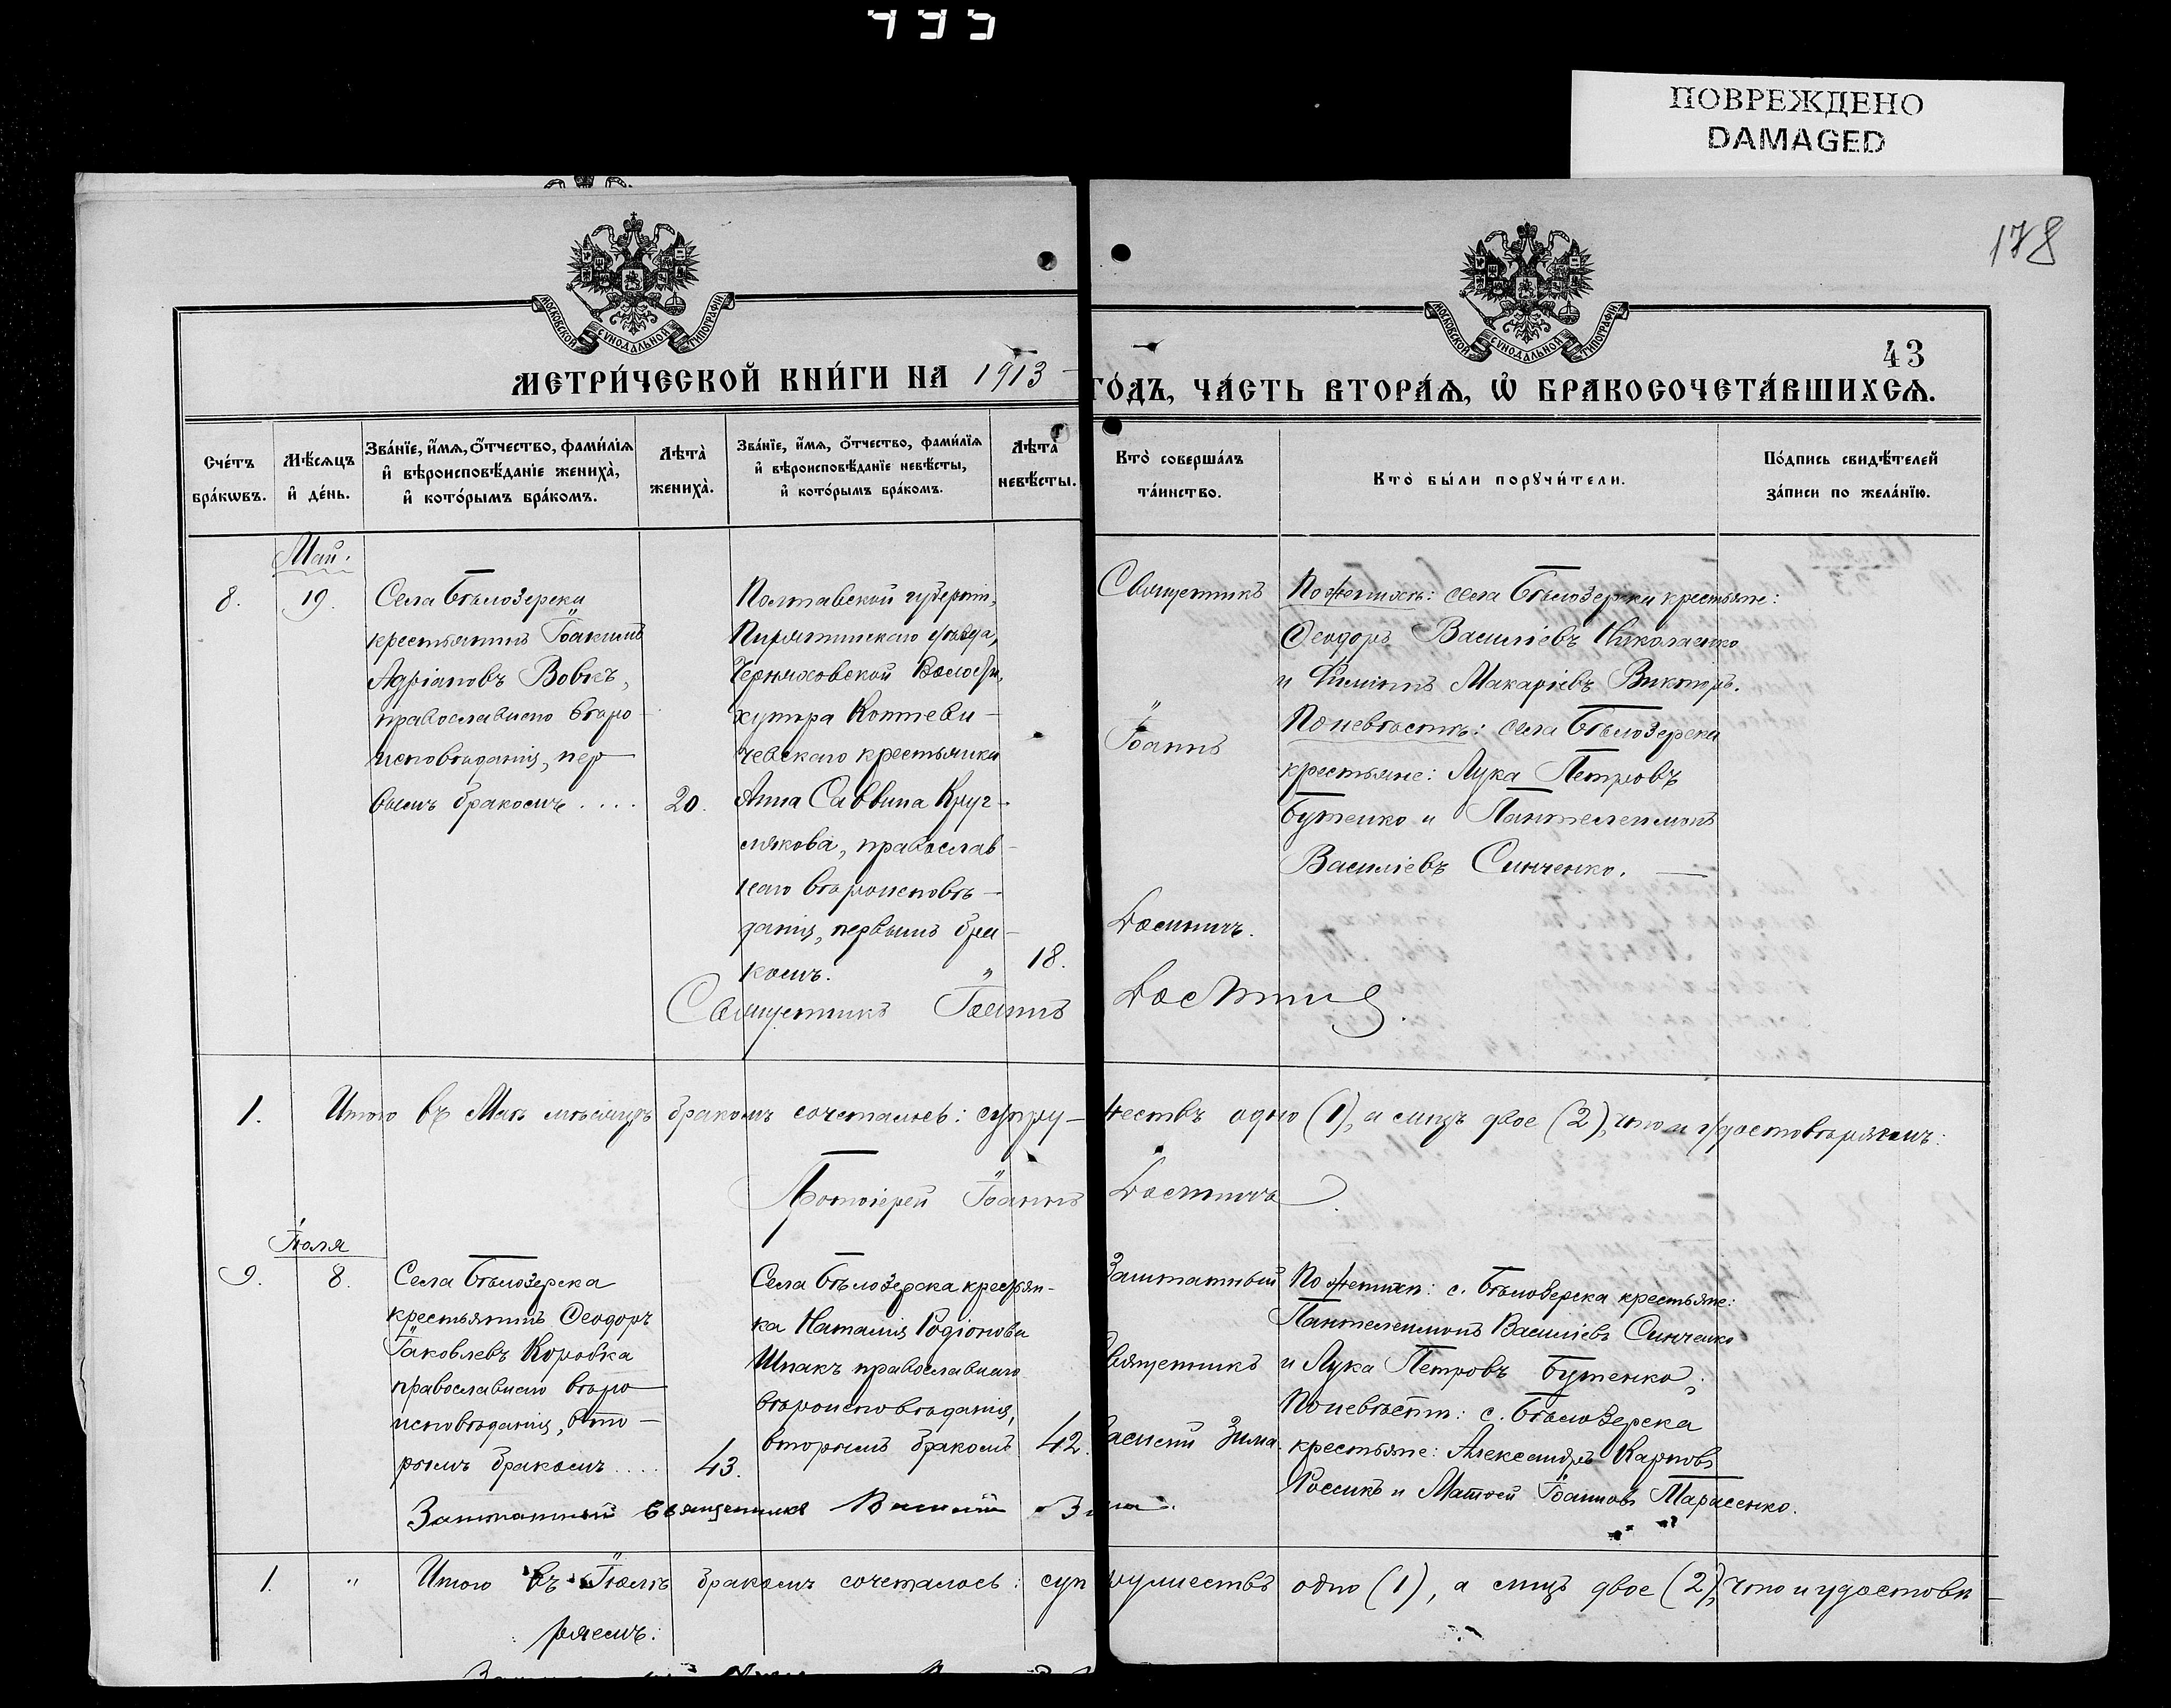 ПОВРЕЖДЕНО
DAMAGED
178
МОСКОВСКОЙ СѴНОДАЛЬНОЙ ТИПОГРАФІИ
МОСКОВСКОЙ СѴНОДАЛЬНОЙ ТИПОГРАФІИ
43
МЕТРИ́ЧЕСКОЙ КНИ́ГИ НА 1913
ГО́ДЪ, ЧА́СТЬ ВТОРА́Ѧ, Ѡ҆ БРАКОСОЧЕТА́ВШИХСѦ.
Сче́тъ
бра́кѡвъ.
Мѣ́сѧцъ
и҆ де́нь.
Зва́нїе, и҆́мѧ, ѻ҆́тчество, фами́лїѧ
и҆ вѣроисповѣ́данїе жениха̀,
и҆ кото́рымъ бра́комъ.
Лѣта̀
жениха̀.
Зва́нїе, и҆́мѧ, ѻ҆́тчество, фами́лїѧ
и҆ вѣроисповѣ́данїе невѣ́сты,
и҆ кото́рымъ бра́комъ.
Лѣта̀
невѣ́сты.
Кто̀ соверша́лъ
та́инство.
Кто̀ бы́ли порꙋчи́тели.
По́дпись свидѣ́телей
за́писи по жела́нїю.
Май.
8.
19.
Села Бѣлозерки
крестьянинъ Іоакимъ
Адріановъ Вовкъ,
православнаго вѣро-
исповѣданія, пер-
вымъ бракомъ . . . .
20.
Полтавской губерніи,
Пирятинскаго уѣзда,
Черняховской Волости,
хутора
чевскаго крестьянка
Анна Саввина Круг-
лякова, православ-
наго вѣроисповѣ-
данія, первымъ бра-
комъ. „
18.
Священникъ
Іоаннъ
По женихѣ: села Бѣлозерки крестьяне:
Ѳеодоръ Василіевъ Николаенко
и Филиппъ Макаріевъ Викторъ.
По невѣстѣ: села Бѣлозерки
крестьяне: Лука Петровъ
Бутенко и Пантелеимонъ
Василіевъ Синченко.
Священникъ Іоаннъ
1. Итого въ Маѣ мѣсяцѣ бракомъ сочеталось: супру-жествъ одно (1), а лицъ двое (2), что и удостовѣряемъ:
Протоіерей Іоаннъ
Іюля
9.
8.
Села Бѣлозерска
крестьянинъ Ѳеодоръ
Іаковлевъ Коробка
православнаго вѣро-
исповѣданія, вто-
рымъ бракомъ ....
43.
Села Бѣлозерска крестьян-
ка Наталія Родіонова
Шпакъ православнаго
вѣроисповѣданія,
вторымъ бракомъ
42.
Заштатный
Священникъ
Василій Зима.
По женихѣ: с. Бѣлозерска крестьяне:
Пантелеимонъ Василіевъ Синченко
и Лука Петровъ Бутенко;
По невѣстѣ: с. Бѣлозерска
крестьяне: Александръ Карповъ
Носикъ и Матѳей Іоанновъ Тарасенко.
Заштатный Священникъ Василій Зима.
1. „ Итого въ Іюлѣ бракомъ сочеталось: супружествъ одно (1), а лицъ двое (2), что и удостовѣ-
ряемъ: